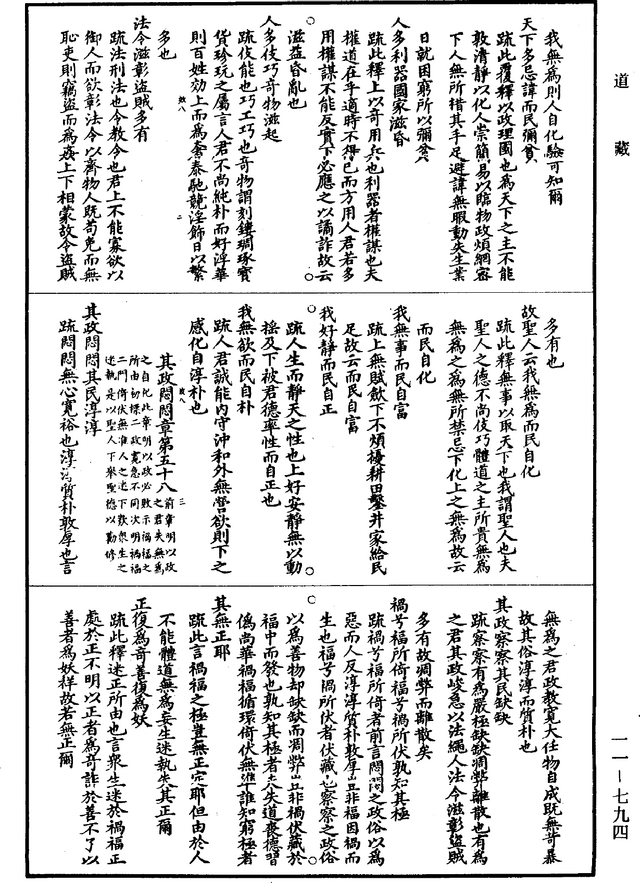 道藏
我無為則人自化驗可知爾
天下多忌諱而民彌貧
疏此覆釋以政理國也為天下之主不能
敦清靜以化人崇簡易以臨物政煩網密
下人無所措其手足避諱無暇動失生業
日就困窮所以彌貧
人多利器國家滋昏
疏此釋上以奇用兵也利器者權謀也夫
權道在乎適時不得已而方用人君若多
用權謀不能反實下必應之以譎詐故云
滋益昏亂也
人多伎巧奇物滋起
疏伎能也巧工巧也奇物謂刻鏤琱琢寶
貨珍玩之屬言人君不尚純朴而好浮華
則百姓効上而為奢泰馳競淫飾日以繁
多也
法令滋彰盜賊多有
疏法刑法也令教令也君上不能寡欲以
御人而欲彰法令以齊物人既苟免而無
恥吏則竊盜而為姦上下相蒙故令盜賊
多有也
故聖人云我無為而民自化
疏此釋無事以取天下也我謂聖人也夫
聖人之德不尚伎巧體道之主所貴無為
無為之為無所禁忌下化上之無為故云
而民自化
我無事而民自富
疏上無賦歛下不煩擾耕田鑿井家給民
足故云而民自富
我好靜而民自正
疏人生而靜天之性也上好安靜無以動
搖及下被君德率性而自正也
我無欲而民自朴
疏人君誠能內守沖和外無營欲則下之
感化自淳朴也
三
其政悶悶章第五十八
前章明以政之君失無為
之自化此章明以政必敗示禍福之
所由初標二政寬急不同次明禍福
二門倚伏無准人之迷下歎衆生之
迷執是以聖人下舉聖德以勸修
其政悶悶其民淳淳
疏悶悶無心寬裕也淳淳質朴敦厚也言
無為之君政教寬大任物自成既無苛暴
故其俗淳淳而質朴也
其政察察其民缺缺
疏察察有為嚴極缺缺凋弊離散也有為
之君其政峻急以法繩人法令滋彰盜賊
多有故凋弊而離散矣
禍兮福所倚福兮禍所伏孰知其極
疏禍兮福所倚者前言悶悶之政俗以為
惡而人反淳淳質朴敦厚豈非福因禍而
生也福兮禍所伏者伏藏也察察之政俗
以為善物却缺缺而凋弊豈非禍伏藏於
福中而發也孰知其極者夫失道喪德習
偽尚華禍福循環倚伏無準誰知窮極者
其無正耶
疏此言禍福之極豈無正定耶但由於人
不能體道無為妄生迷執失其正爾
正復為奇善復為妖
疏此釋迷正所由也言衆生迷於禍福正
處於正不明以正者為奇詐於善不了以
善者為妖祥故若無正爾
一一—七九四